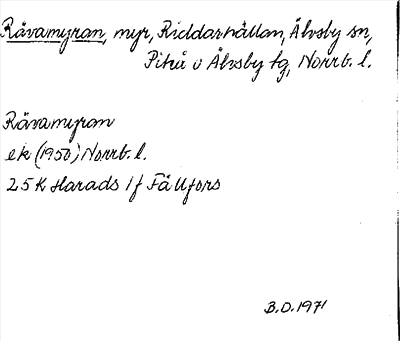 Rävamyran, myr, Riddarhällan, Älvsby sn,
Piteå o Älvsby tg, Norrb. l.
Rävamyran
ek (1950) Norrb. l.
25K Harads 1f Fällfors
B.O. 1971